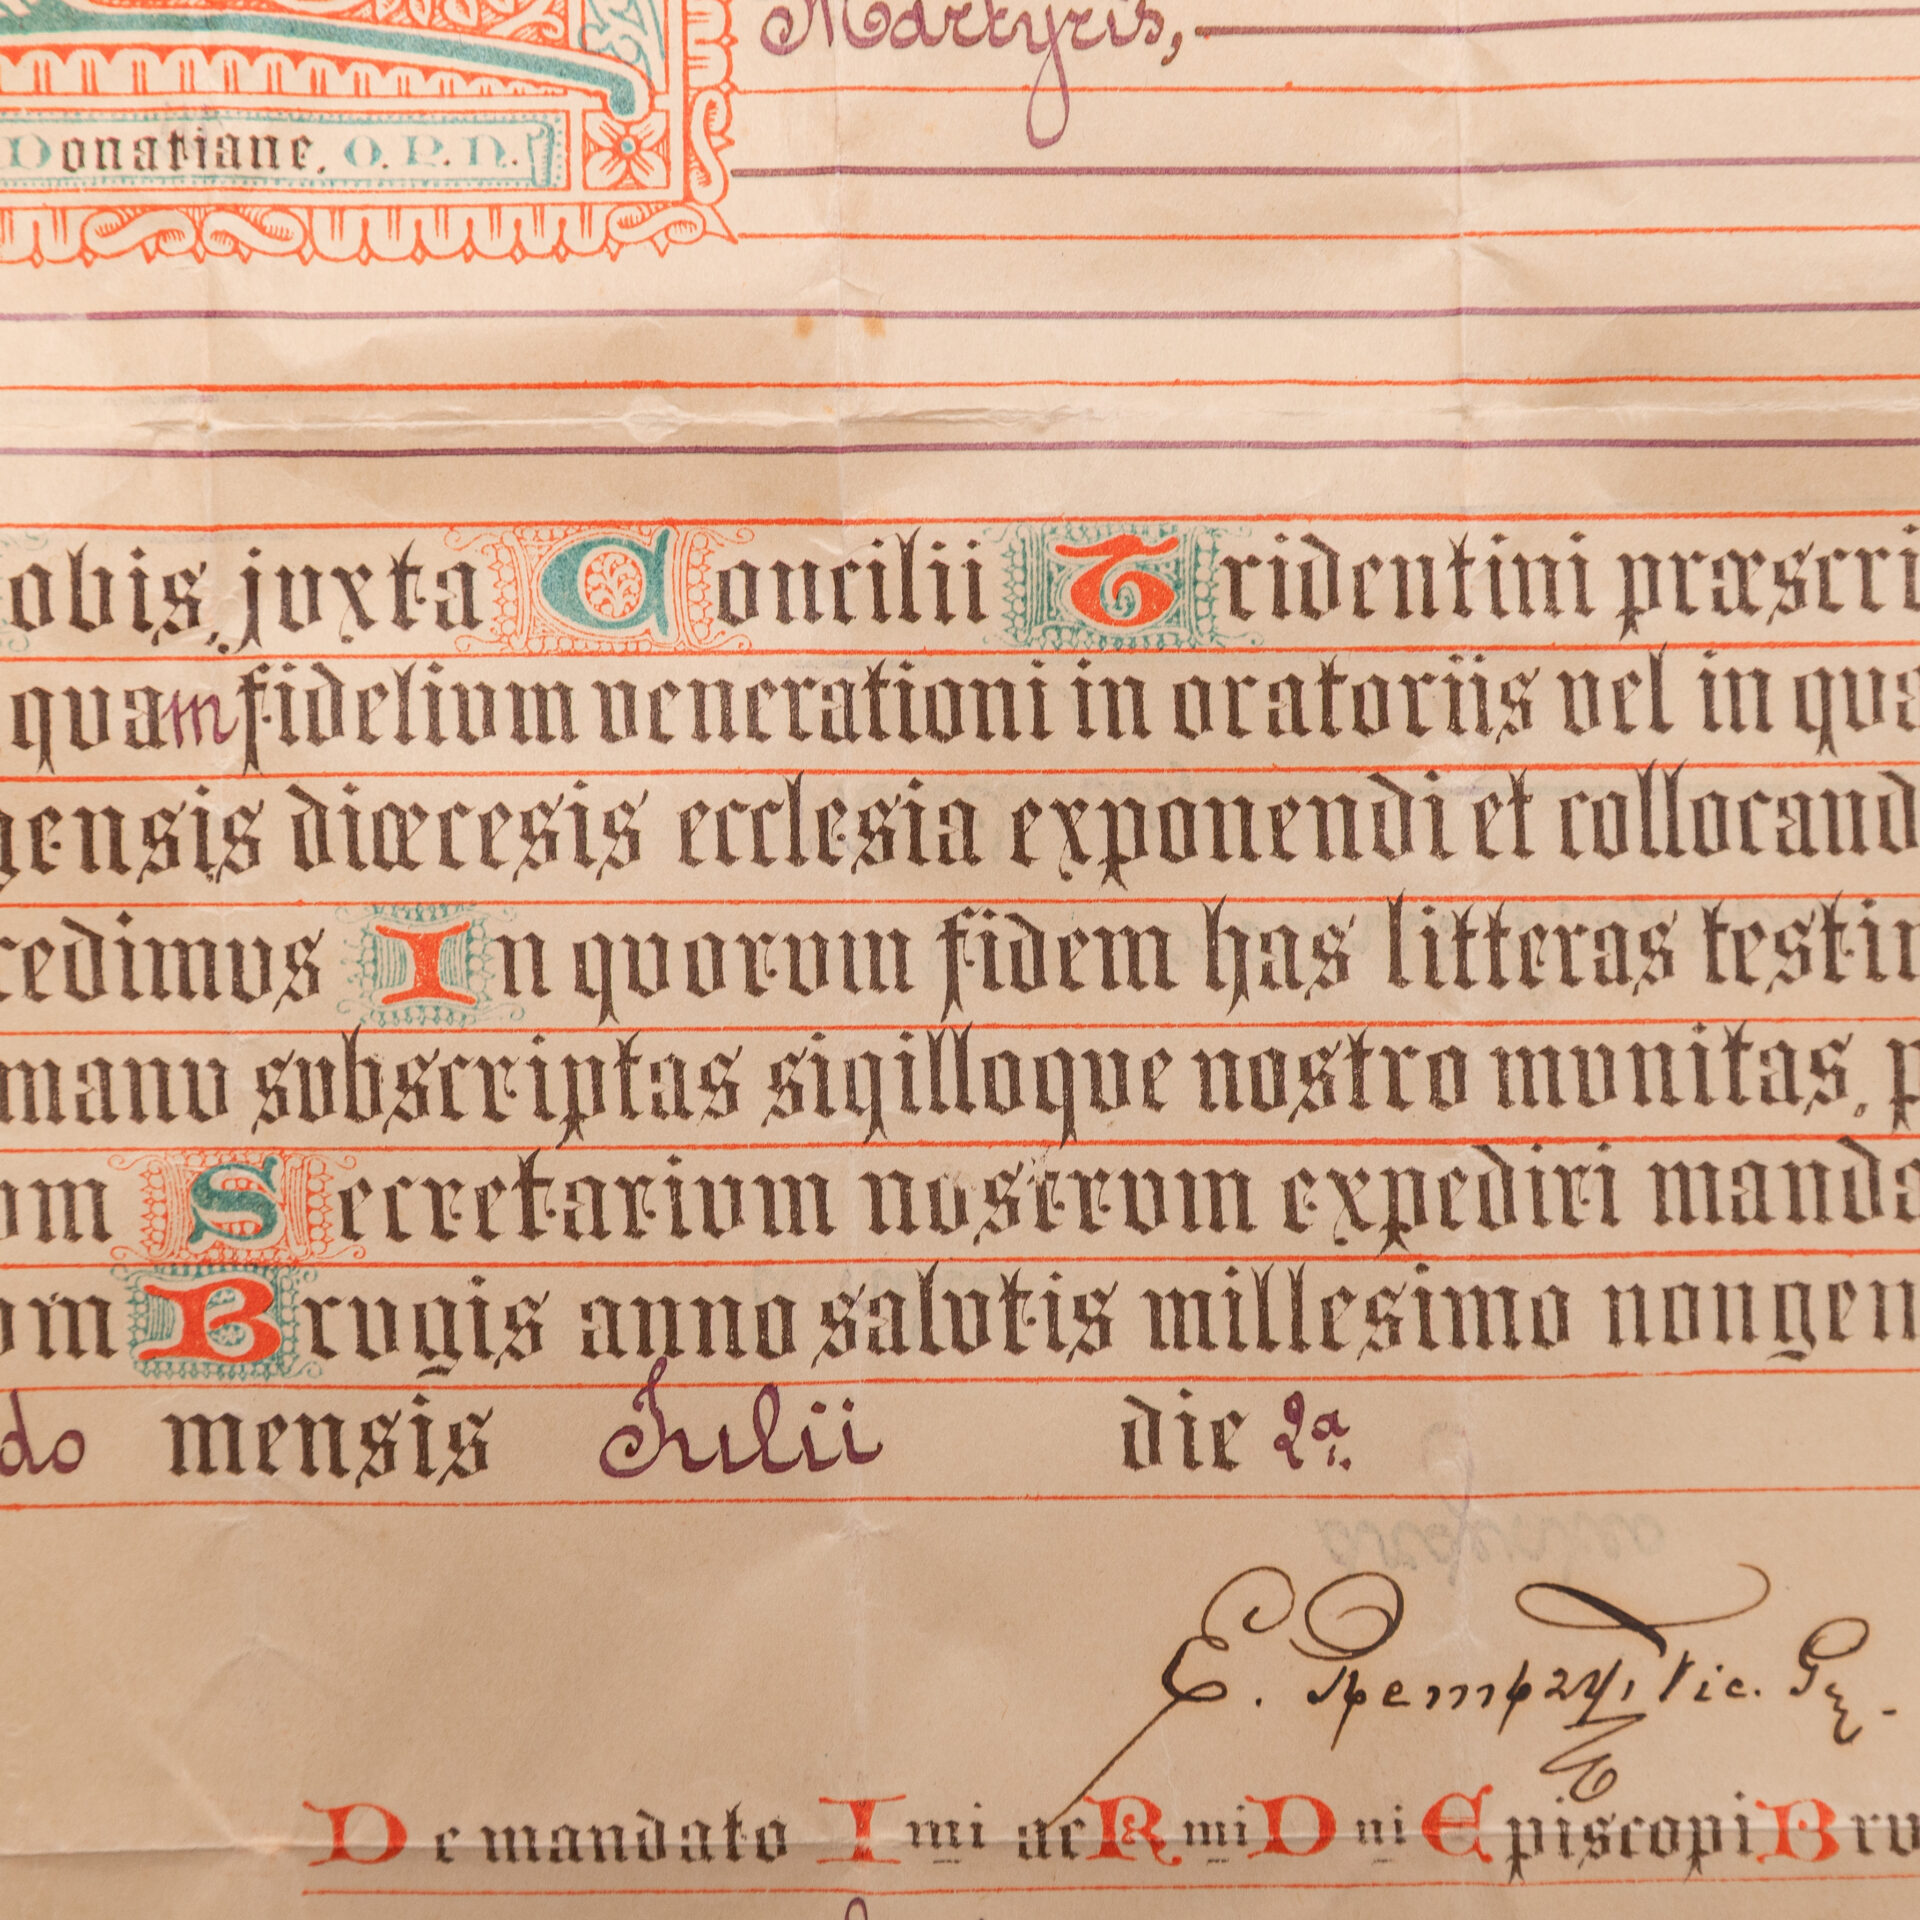 Martyris,
Donatiane, O. P. N.
obis, juxta Concilii Tridentini præscri
quam fidelium venerationi in oratoriis vel in qua
gensis diœcesis ecclesia exponendi et collocand
redimus In quorum fidem has litteras testim
manu subscriptas sigilloque nostro munitas, p
um Secretarium nostrum expediri manda
um Brugis anno salutis millesimo nongen
do mensis Julii die 2a.
Vic.
De mandato Imi ac Rmi Dni Episcopi Bru